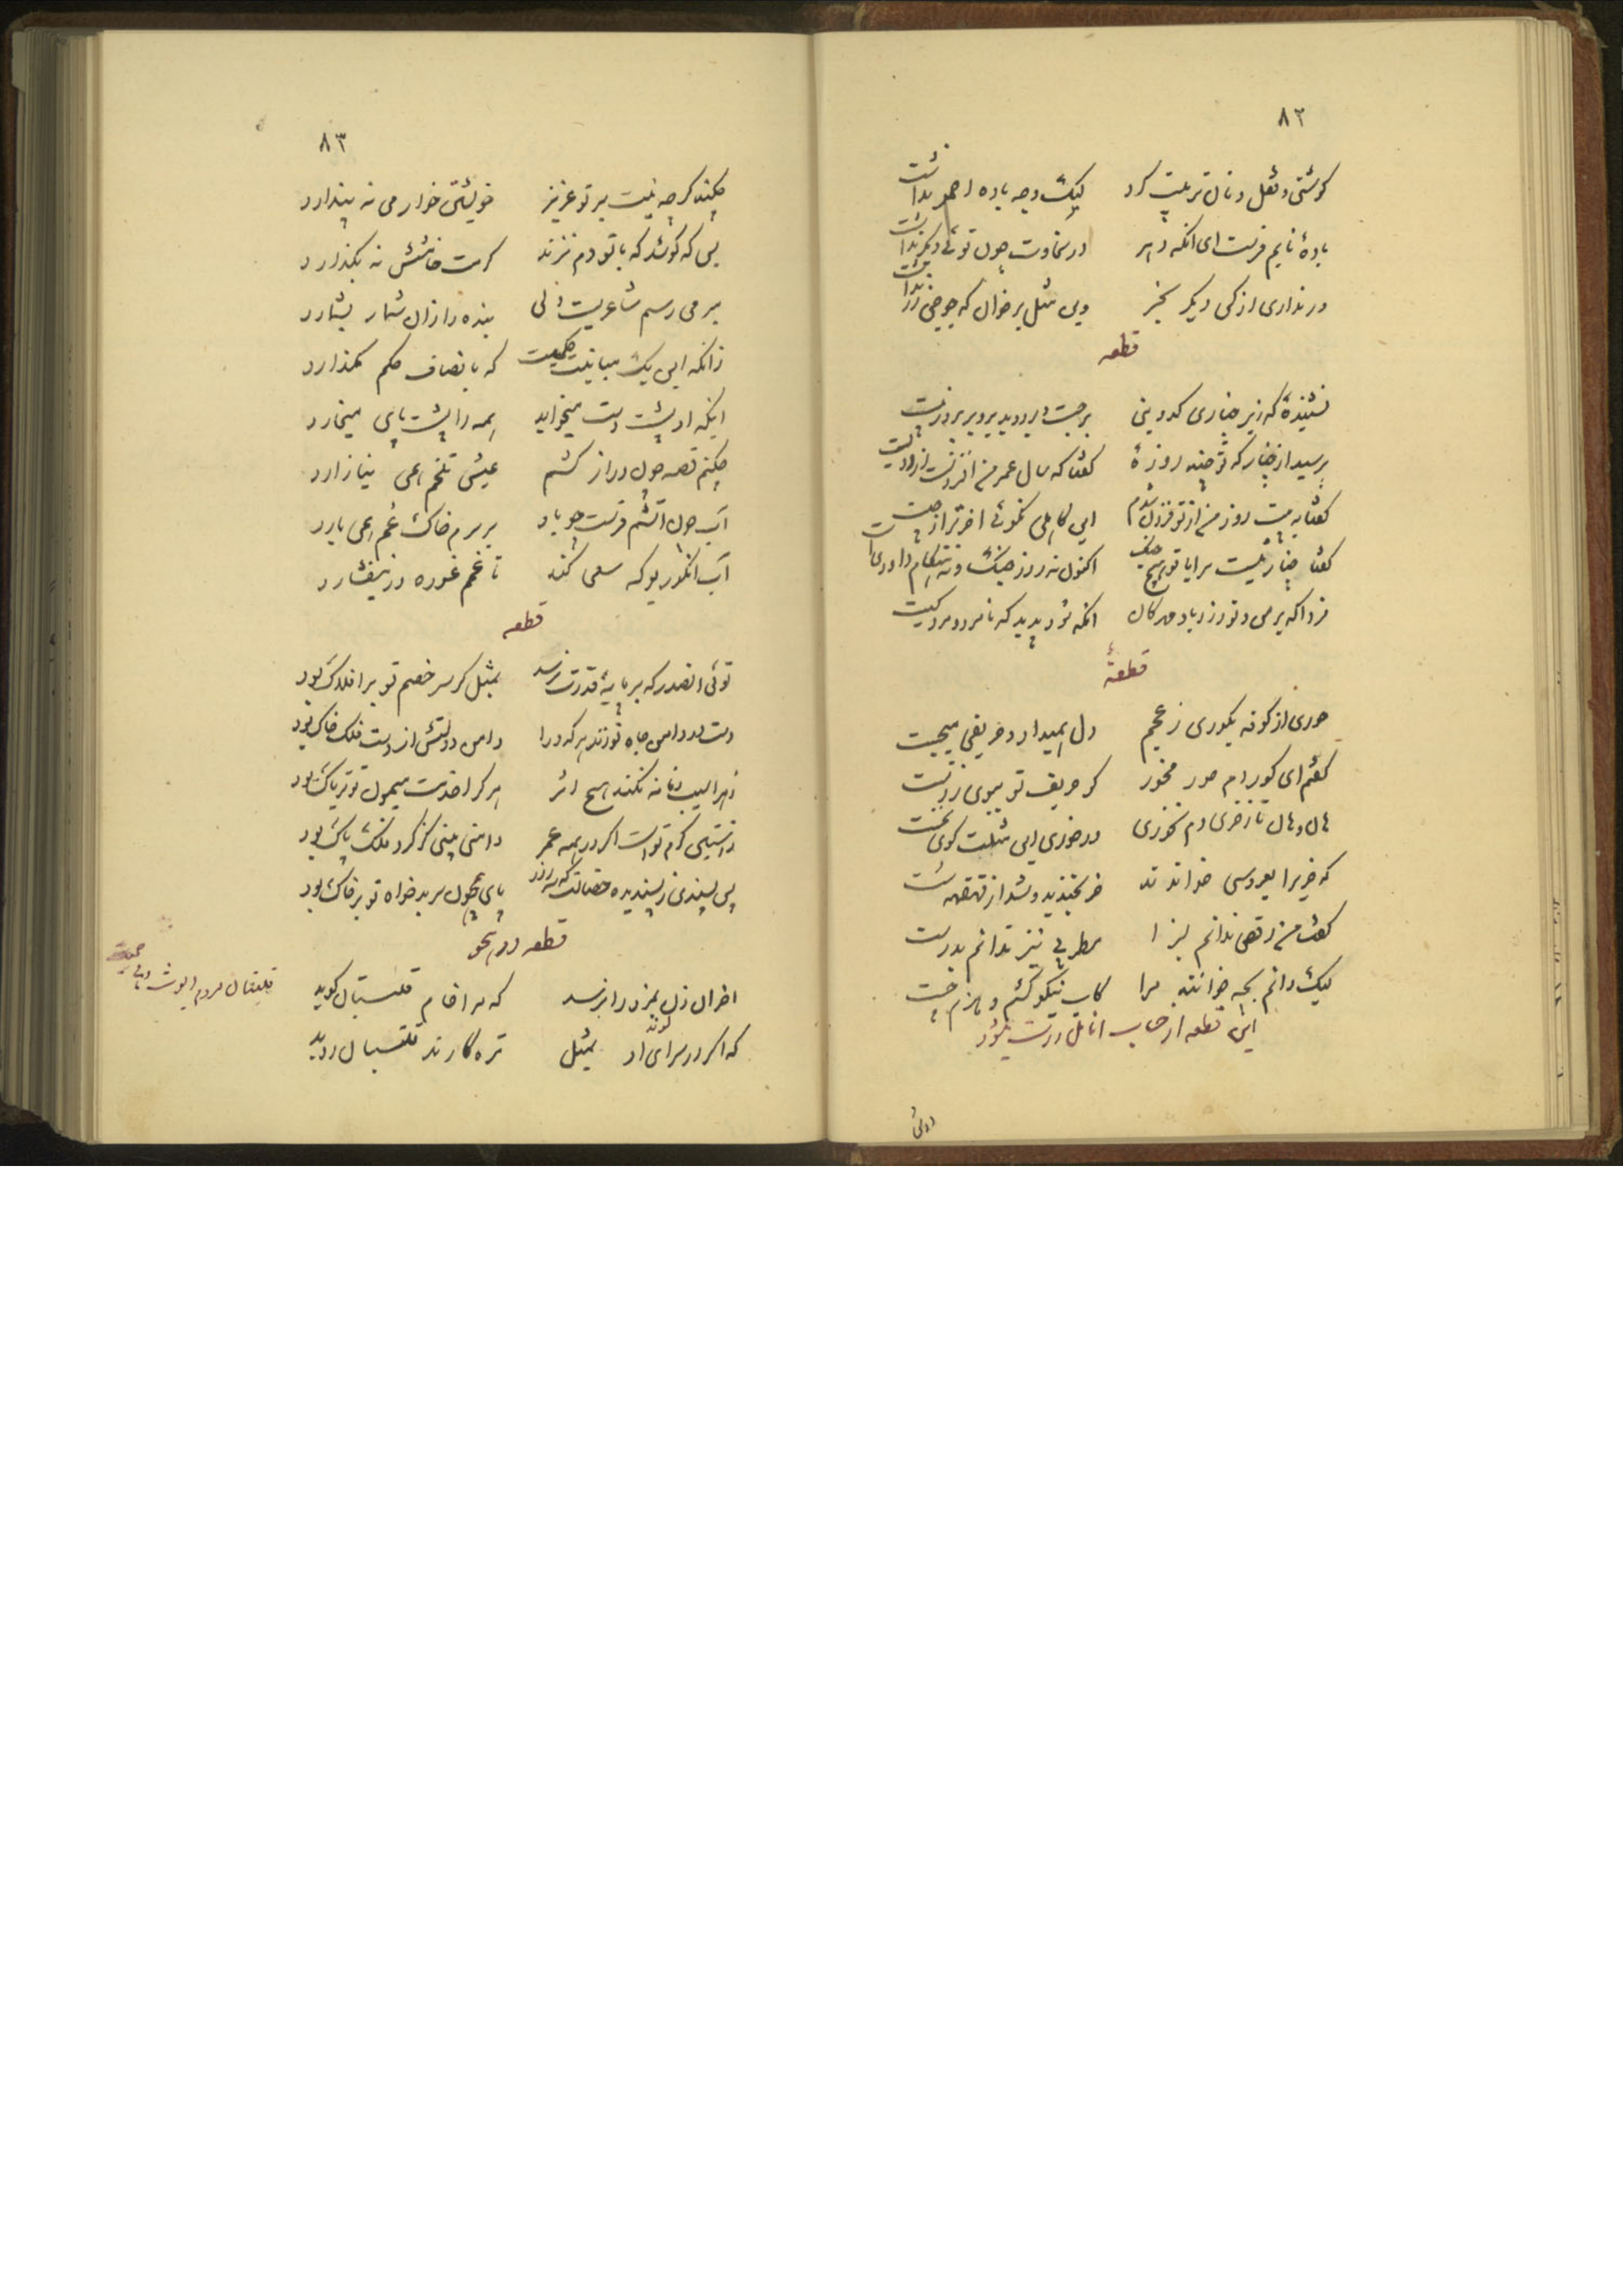 ۸۲
گوشتی و نقل و نان ترتیب کرد لیک وجه باده احمر نداشت
باده نابم فرست ای آنکه دهر در سخاوت چون توئی دیگر نداشت
ور نداری از کسی دیگر بخر وین مثل برخوان که جو خر زر نداشت
قطعه
نشنیدهٔ که زیر چناری کدوبنی برجست و بر دوید برو بر بروز بیست
پرسید از چنار که تو چند روزهٔ گفتا که سال عمر من افزونتر از دویست
گفتا به بیست روز من از تو فزون شدم این کاهلی بگوئی آخر ز برای چیست
گفتا چنار نیست مرا با تو هیچ جنگ اکنون نه روز جنگ و نه هنگام داوریست
فردا که بر من و تو وزد باد مهرکان آنکه شود پدید که نامرد و مرد کیست
قطعهٔ
حوری از کوفه بکوری ز عجم دل همیداد و حریفی میجست
گفتم ای کور دم حور مخور کو حریف تو ببوی زر تست
هان و هان تا ز خری دم نخوری ور خوری این مثلت گوی نخست
که خریرا بعروسی خواندند خر بخندید و شد از قهقهه سست
گفت من رقص ندانم بسزا مطربی نیز ندانم بدرست
لیک دانم بچه خوانند مرا کاب نیکو کشم و هیزم چست
این قطعه از حساب انامل درست میشود
دوئی
۸۳
چکند گرچه نیست بر تو عزیز خویشتن خوار می نه پندارد
پس که کوشد که با تو دم نزند کرمت خامشش نه بگذارد
بر من رسم شاعریت ولی بنده را زان شمار نشمارد
زانکه این یک مباینت حکمیست که بانصاف حکم بگذارد
اینکه او پشت دست میخواید همه را پشت پای میخارد
چکنم قصه چون دراز کشم عیش تلخم همی بیازارد
آب چون آتشم فرست چو باد بر سرم خاک غم همی بارد
آب انگور بو که سعی کند تا غمم غوره در نیفشارد
قطعه
توئی آنصدر که بر پایهٔ قدرت نرسد بمثل گر سر خصم تو بر افلاک بود
دست در دامن جاه تو زند هر که ورا دامن دولتش از دست فلک چاک بود
زهر آسیب زمانه نکند هیچ اثر هر کرا خدمت میمون تو تریاک بود
ز آستین کرم تو است اگر در همه عمر دامنی بینی کز گرد فلک پاک بود
پس پسندی ز پسندیده خصالت که بروز پای همچون سر بدخواه تو بر خاک بود
قطعه در هجو
خواهران زن بمزد را برسد که مرا خام قلتبان گوید
که اگر در سرای او بمثل تره کارند قلتبان روید
قلتبان مردم دیوث